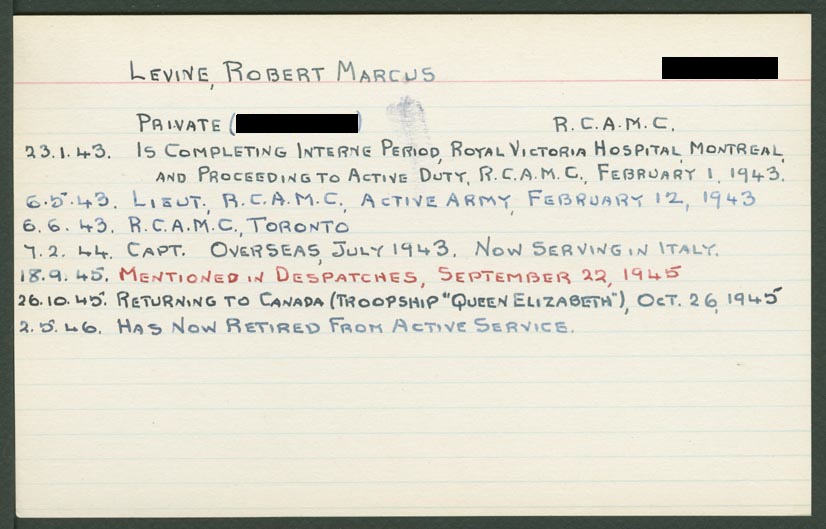 Levine, Robert Marcus
Private ( ) R.C.A.M.C.
23.1.43. Is Completing Interne Period, Royal Victoria Hospital, Montreal,
and Proceeding to Active Duty, R.C.A.M.C., February 1, 1943.
6.5.43. Lieut., R.C.A.M.C., Active Army, February 12, 1943
6.6.43. R.C.A.M.C., Toronto
7.2.44. Capt. Overseas, July 1943. Now Serving in Italy.
18.9.45. Mentioned in Despatches, September 22, 1945
26.10.45. Returning to Canada (Troopship "Queen Elizabeth"), Oct. 26, 1945
2.5.46. Has Now Retired From Active Service.